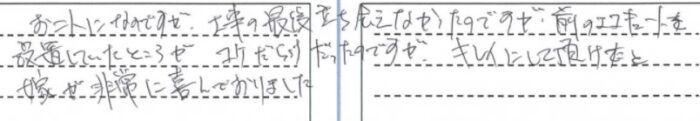 おニ人になのですが、工事の最後立ち会えなかったのですが、前のエコキュートを
設置していたところが コケだらけだったのですが、キレイにして頂けたと
嫁が非常に喜んでおりました